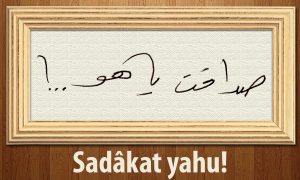 صداقت یا هو ..!
Sadâkat yahu!